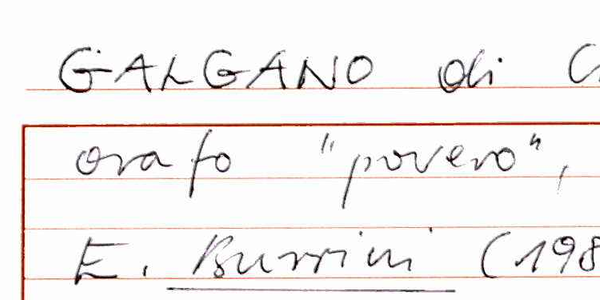 GALGANO di C
orafo "povero",
E. Burrini (198